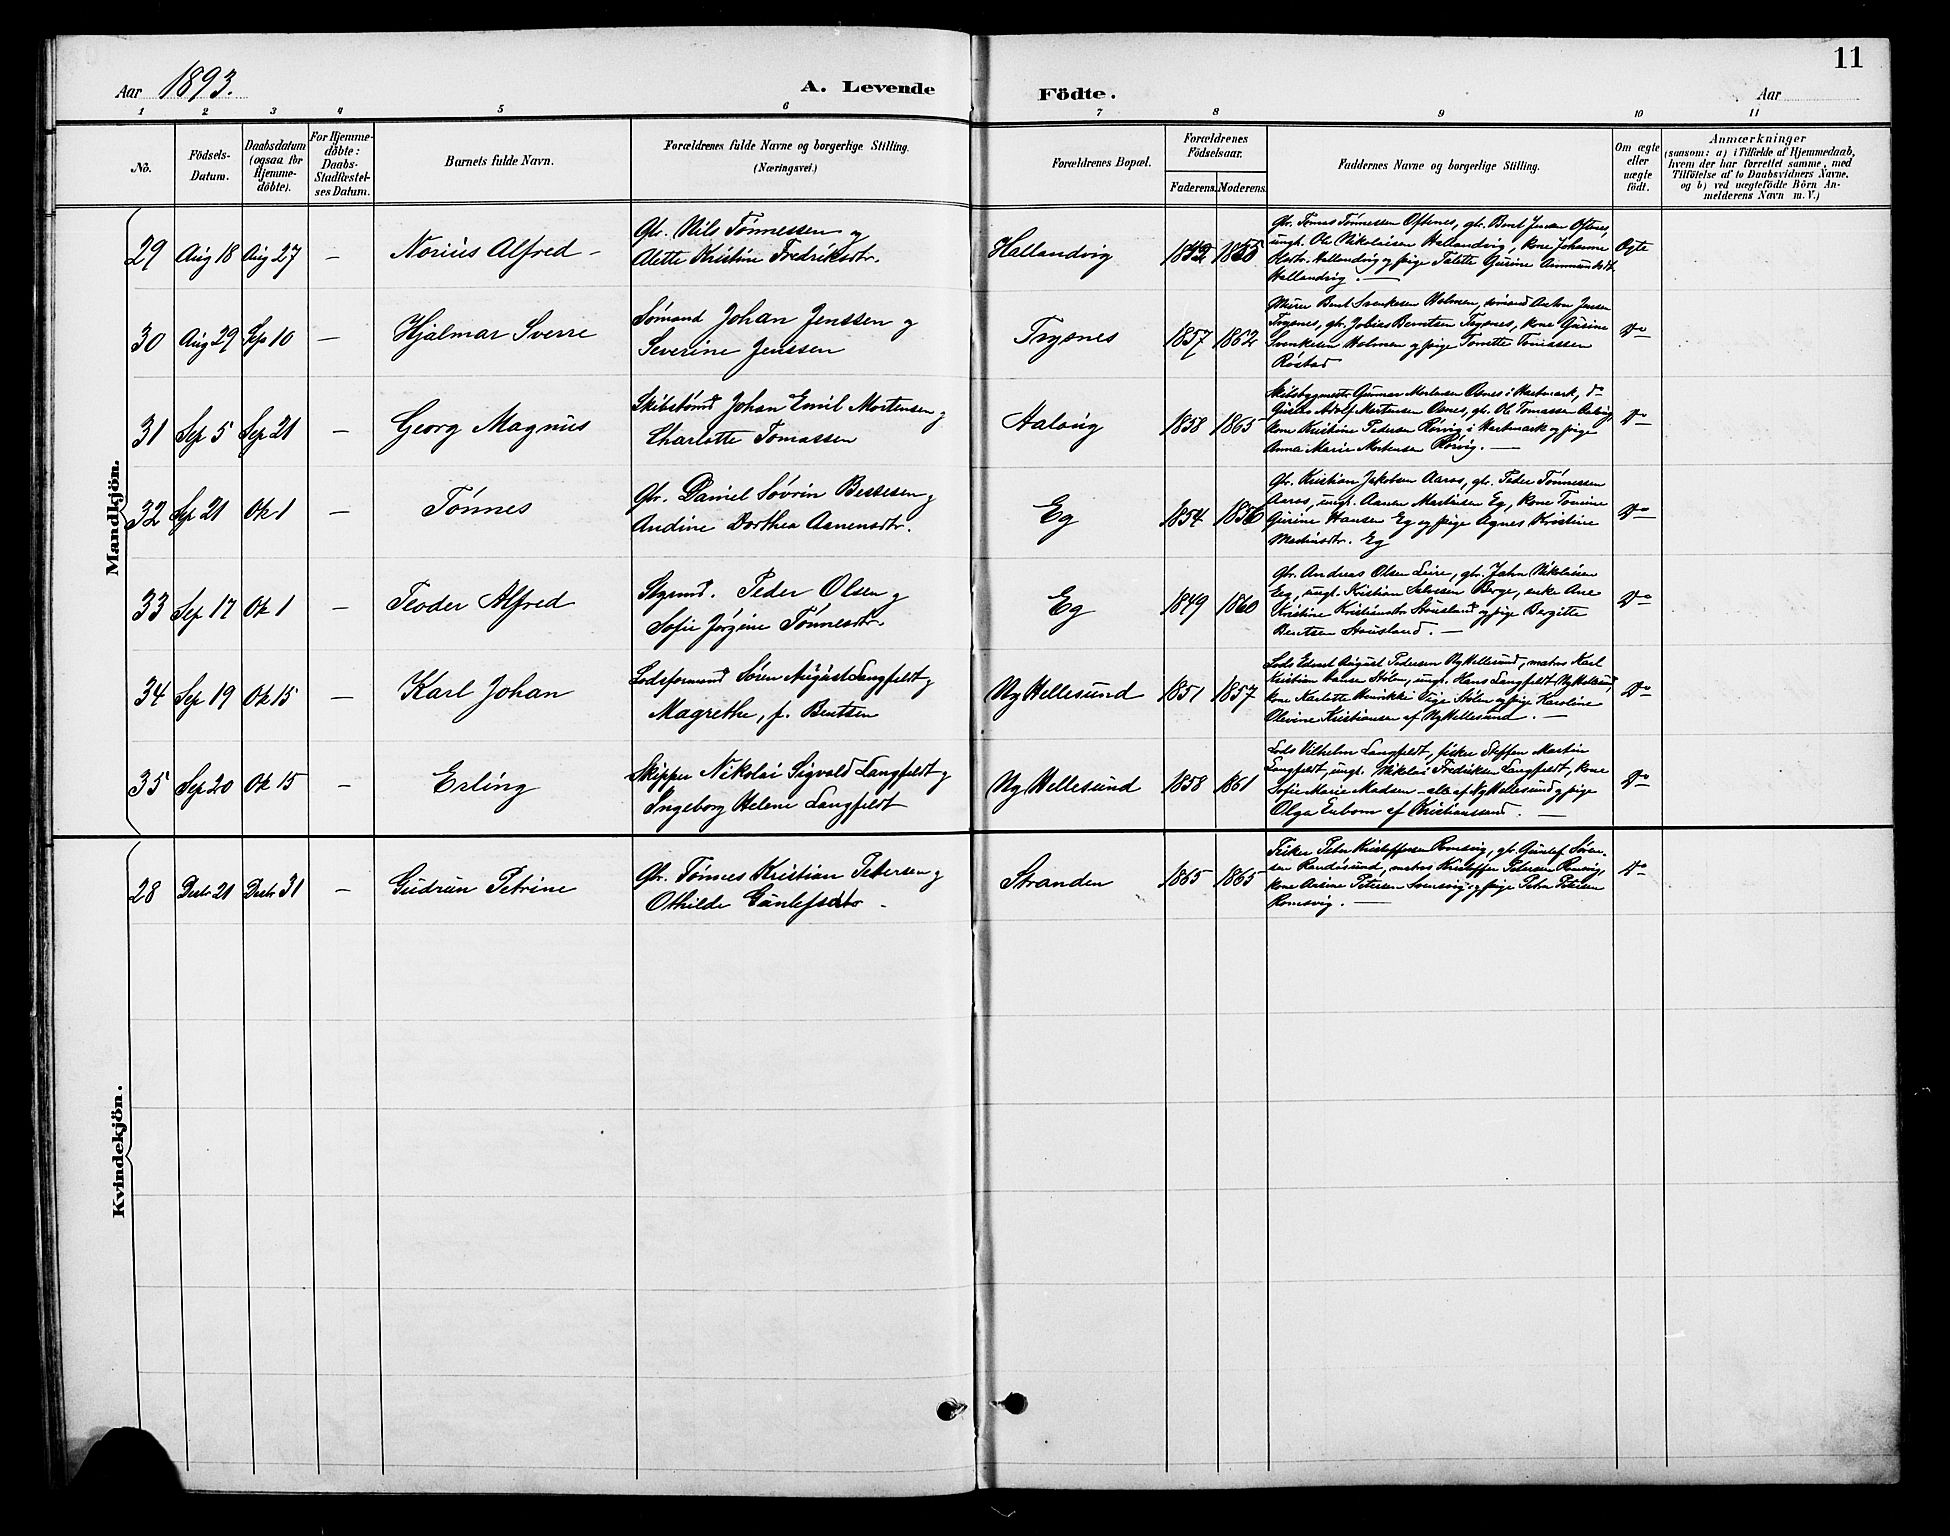 11
Aar 1893.
A. Levende
Födte.
Aar
1 2 3 4 5 6 7 8 9 10 11
No.
Födsels-
Datum.
Daabsdatum
(ogsaa for
Hjemme-
döbte).
For Hjemme-
döbte:
Daabs-
Stadfæstel-
ses Datum.
Barnets fulde Navn.
Forældrenes fulde Navne og borgerlige Stilling.
(Næringsvei.)
Forældrenes Bopæl.
Forældrenes
Födselsaar.
Faderens. Moderens.
Faddernes Navne og borgerlige Stilling.
Om ægte
eller
uægte
födt.
Anmærkninger
(saasom: a) i Tilfælde af Hjemmedaab,
hvem der har forrettet samme, med
Tilföielse af to Daabsvidners Navne.
og b) ved uægtefödte Börn An-
melderens Navn m. V.)
Mandkjön.
29 Aug 18 Aug 27 – Norius Alfred –
Gbr. Nils Tönnessen og
Alette Kristine Fredriksdtr.
Hallandvig
1855
Gbr. Tönnes Tönnessen Oftenes, gbr. Bent Jensen Oftenes,
ungk. Ole Nikolaisen Hallandvig, kone Johanne
Olsdtr. Hallandvig og pige Talette Gurine Aanmundsdt.
Hallandvig. –
Ægte
30 Aug 29 Sep 10 – Hjalmar Sverre
Sömand Johan Jenssen og
Severine Jenssen
Trysnes
1857 1862
Murer Bent Svenksen Holmen, sömand Anton Jensen
Trysnes, gbr. Jobias Berntsen Trysnes, kone Gurine
Svenksen Holmen og pige Tomette Tomassen
Röstad
Do
31 Sep 5 Sep 21 – Georg Magnus
Skibstömd Johan Emil Mortensen og
Charlotte Tomassen
Aalovig
1858 1865
Skibsbygmestr Gunnar Mortensen Osnes i Hartmark, do
Gustav Adolf Mortensen Osnes, gbr. Ole Tomassen
kone Kristine Pedersen Rörvig i Hartmark og pige
Anna Marie Mortensen Rörvig. –
Do
32 Sep 21 Ok 1 – Tönnes
Gbr. Daniel Sövrin Bessesen og
Andine Dorthea Aanensdtr.
Eg
1854 1856
Gbr. Kristian Jakobsen Aaros, gbr. Peder Tönnessen
Aaros, ungk. Aanen Martinsen Eg, kone Tomine
Gurine Hansen Eg og pige Agnes Kristine
Madiasdtr. Eg
Do
33 Sep 17 Ok 1 – Teodor Alfred
Styrmd. Peder Olsen og
Sofie Jörgine Tönnesdtr.
Eg
1849 1860
Gbr. Andreas Olsen Leire, gbr. Jahn Nikolaisen
Eg, ungk. Kristian Salvesen Berge, enke Ane
Kristine Kristiansdtr Stousland og pige Bergitte
Bentsen Stousland. –
Do
34 Sep 19 Ok 15 – Karl Johan
Lodsformand Sören August Langfeldt og
Magrethe, f. Bentsen
Ny Hellesund
1851 1857
Lods Edvart August Pedersen Ny Hellesund, matros Karl
Kristian Hansen Stölen, ungk. Hans Langfeldt Ny Hellesund,
kone Karlotte Henrikke Vige Stölen og pige Karoline
Olevine Kristiansen af Ny Hellesund. –
Do
35 Sep 20 Ok 15 – Erling
Skipper Nikolai Sigvald Langfeldt og
Ingeborg Helene Langfeldt
Ny Hellesund
1858 1861
Lods Vilhelm Langfeldt, fisker Steffen Martin
Langfeldt, ungk. Nikolai Fredriksen Langfeldt, kone
Sofie Marie Madsen – alle af Ny Hellesund og pige
Olga Enbom af Kristianssand. –
Do
Kvindekjön.
28 Decbr 21 Decbr 31 – Gudrun Petrine
Gbr. Tönnes Kristian Petersen og
Othilde Gunlefsdtr –
Stranden
1865 1865
Fisker Peter Kristoffersen Romsvig, gbr. Gunlef Sören-
sen Randösund, matros Kristoffer Petersen Romsvig,
kone Petersen og pige Petra Petersen
Romsvig. –
Do